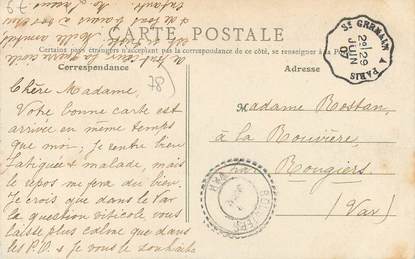 CARTE POSTALE
Certains pays étrangers n'acceptant pas la correspondance de ce côté, se renseigner à la P
Correspondance
Adresse
ST GERMAIN A PARIS
2E 29
JUIN
07
78
Chère Madame,
Votre bonne carte est
arrivée en même temps
que moi; je rentre bien
fatiguée & malade, mais
le repos me fera du bien.
Je crois que dans le Var
la question viticole vous
laisse plus calme que dans
les P.O. & je vous le souhaite
Madame Rostan,
à la Rouvière,
Rougiers
(Var)
ROUGIERS
VAR